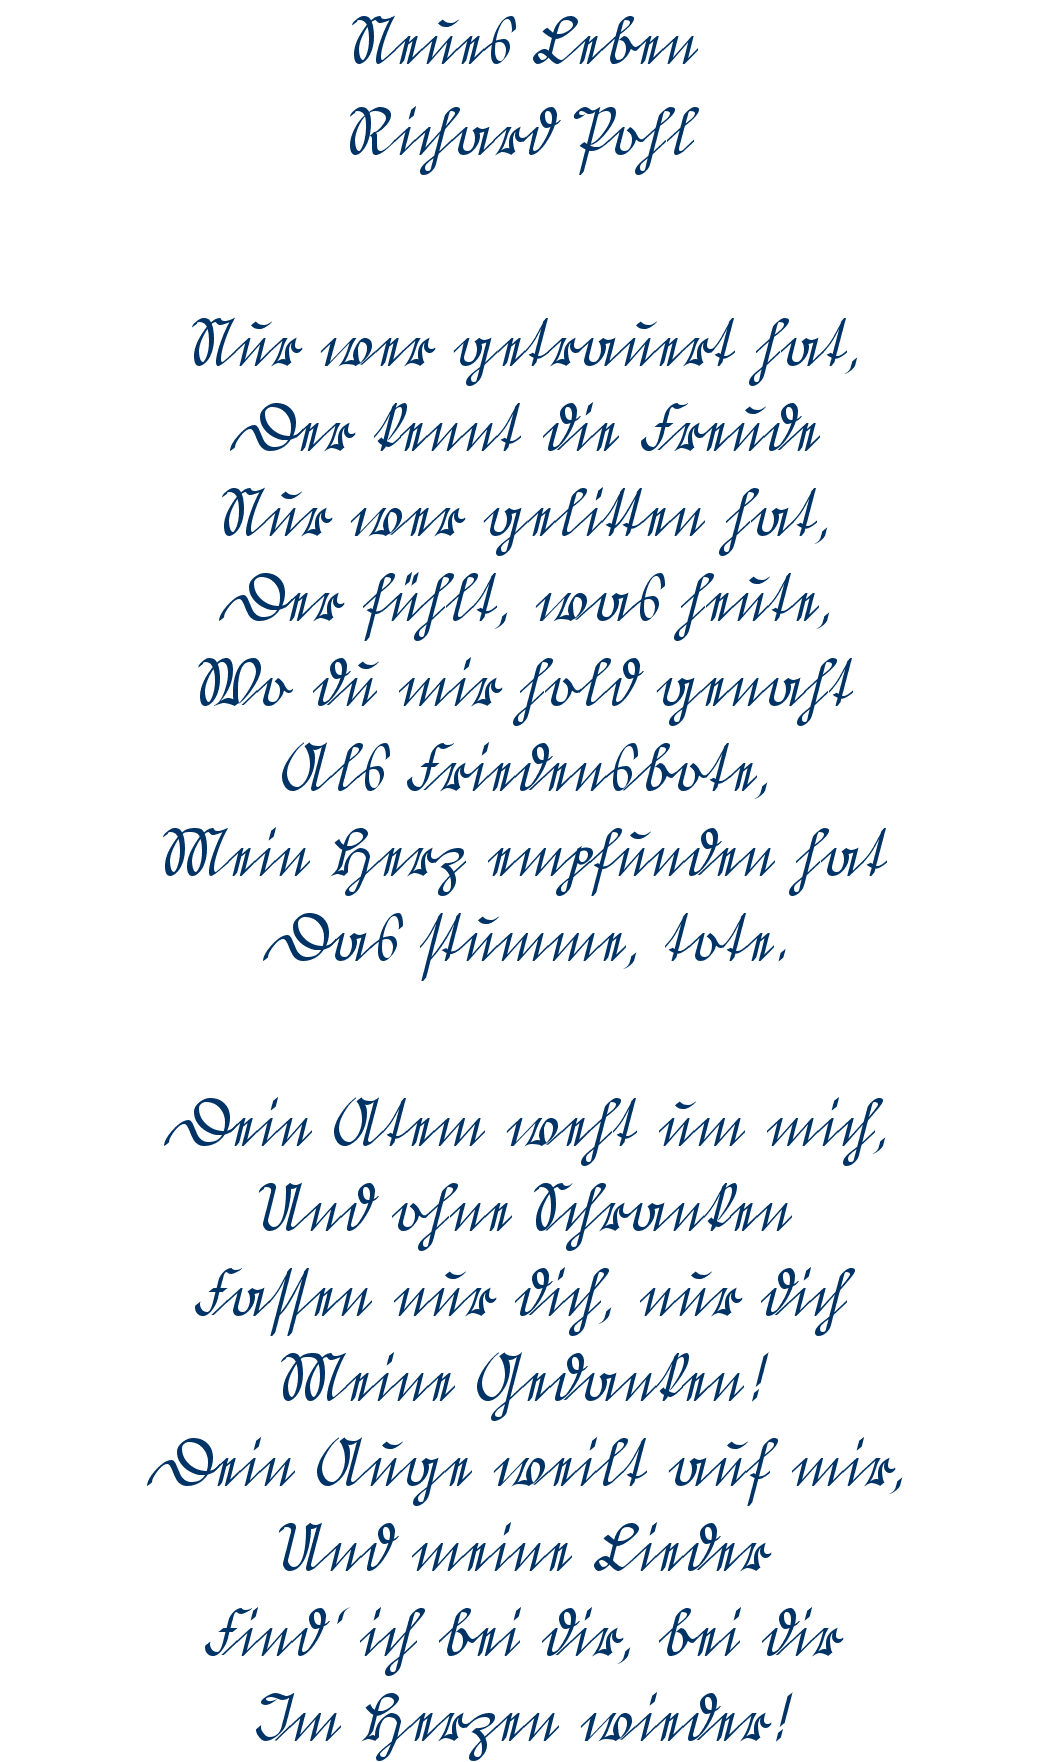 Neues Leben
Richard Pohl
Nur wer getrauert hat,
Der kennt die Freude
Nur wer gelitten hat,
Der fühlt, was heute,
Wo du mir hold genaht
Als Friedensbote,
Mein Herz empfunden hat
Das stumme, tote.
Dein Atem weht um mich,
Und ohne Schranken
Fassen nur dich, nur dich
Meine Gedanken!
Dein Auge weilt auf mir,
Und meine Lieder
Find' ich bei dir, bei dir
Im Herzen wieder!